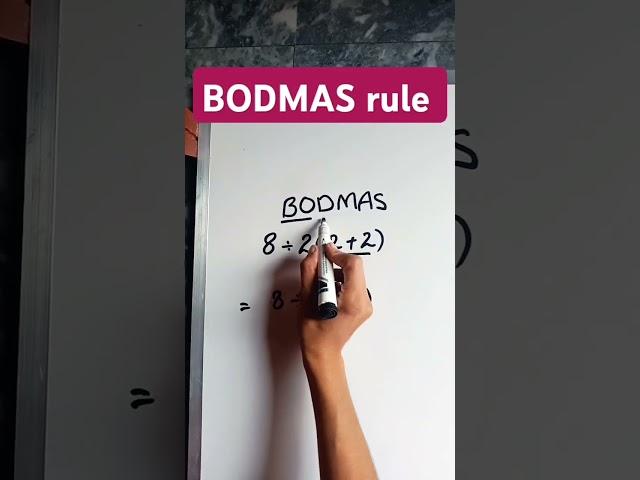 BODMAS rule
BODMAS
8 ÷ 2(2 + 2)
= 8 ÷